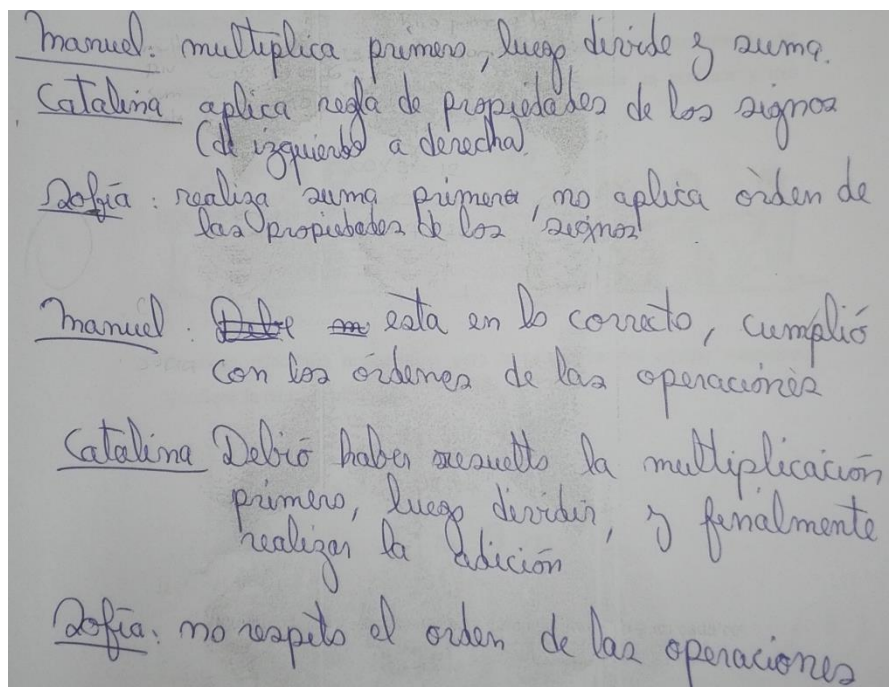 Manuel: multiplica primero, luego divide y suma.
Catalina aplica regla de propiedades de los signos
(de izquierda a derecha)
Sofía: realiza suma primero, no aplica orden de
las propiedades de los signos
Manuel: Debe esta en lo correcto, cumplió
con los órdenes de las operaciones
Catalina Debió haber resuelto la multiplicación
primero, luego dividir, y finalmente
realizar la adición
Sofía: no respeto el orden de las operaciones